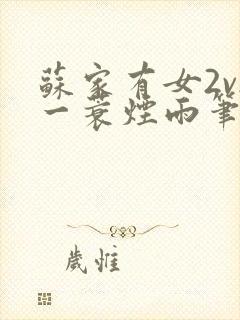 蘇家有女2v
一蓑煙雨筆
歲惟